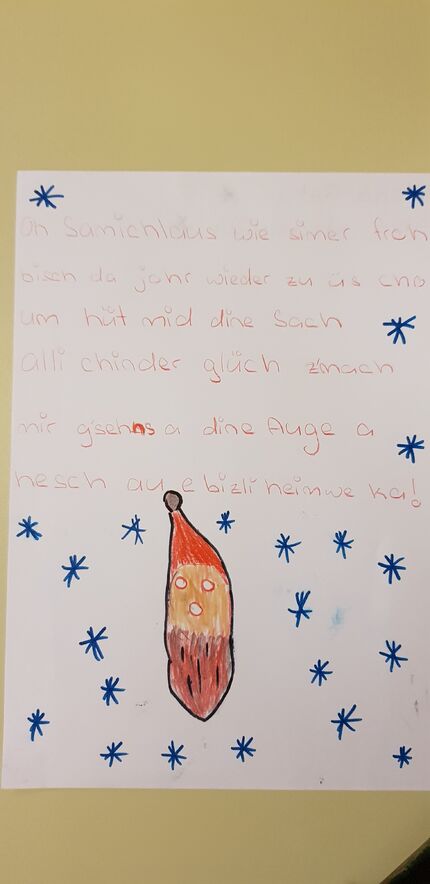 Oh Samichlaus wie simer froh
bisch da johr wieder zu üs cho
um hüt mid dine Sach
alli chinder glüch z'mach
mir g'sehns a dine Auge a
hesch au e bizli heimwe ka!